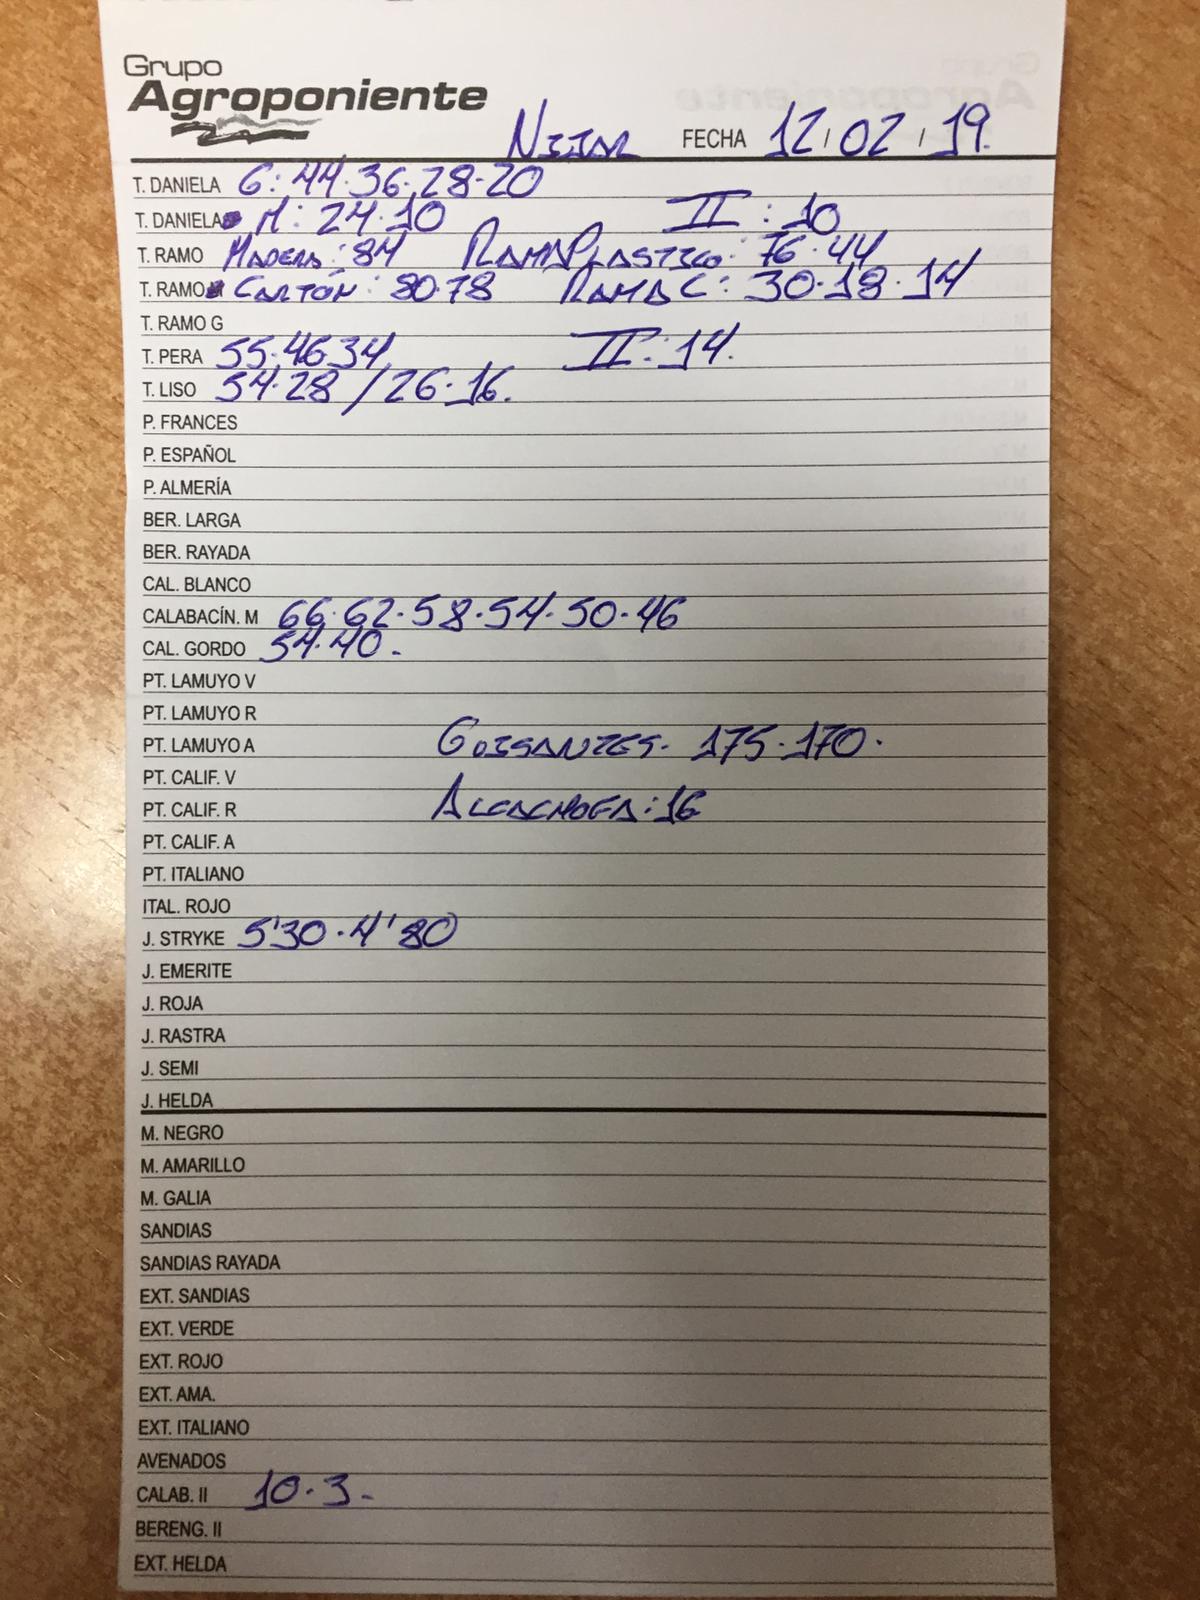 Grupo
Agroponiente
Nijar FECHA 12/02/19.
T. DANIELA G: 44.36.28-20
T. DANIELA M: 24.10 II: 10
T. RAMO MADERA: 84 RAMA PLASTICO: 76.44
T. RAMO CARTÓN: 80.78 RAMA C: 30.18.14
T. RAMO G
T. PERA 55.46.34 II: 14.
T. LISO 54.28 / 26.16.
P. FRANCES
P. ESPAÑOL
P. ALMERÍA
BER. LARGA
BER. RAYADA
CAL. BLANCO
CALABACÍN. M 66.62.58.54.50.46
CAL. GORDO 54.40.-
PT. LAMUYO V
PT. LAMUYO R
PT. LAMUYO A GUISANTES. 175.170.
PT. CALIF. V
PT. CALIF. R ALCACHOFA: 16
PT. CALIF. A
PT. ITALIANO
ITAL. ROJO
J. STRYKE 5'30.4'80
J. EMERITE
J. ROJA
J. RASTRA
J. SEMI
J. HELDA
M. NEGRO
M. AMARILLO
M. GALIA
SANDIAS
SANDIAS RAYADA
EXT. SANDIAS
EXT. VERDE
EXT. ROJO
EXT. AMA.
EXT. ITALIANO
AVENADOS
CALAB. II 10.3.-
BERENG. II
EXT. HELDA